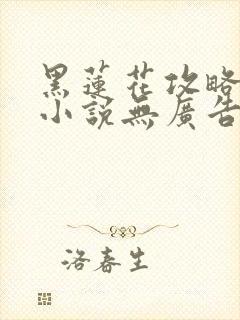 黑蓮花攻略
小說無廣告
洛春生